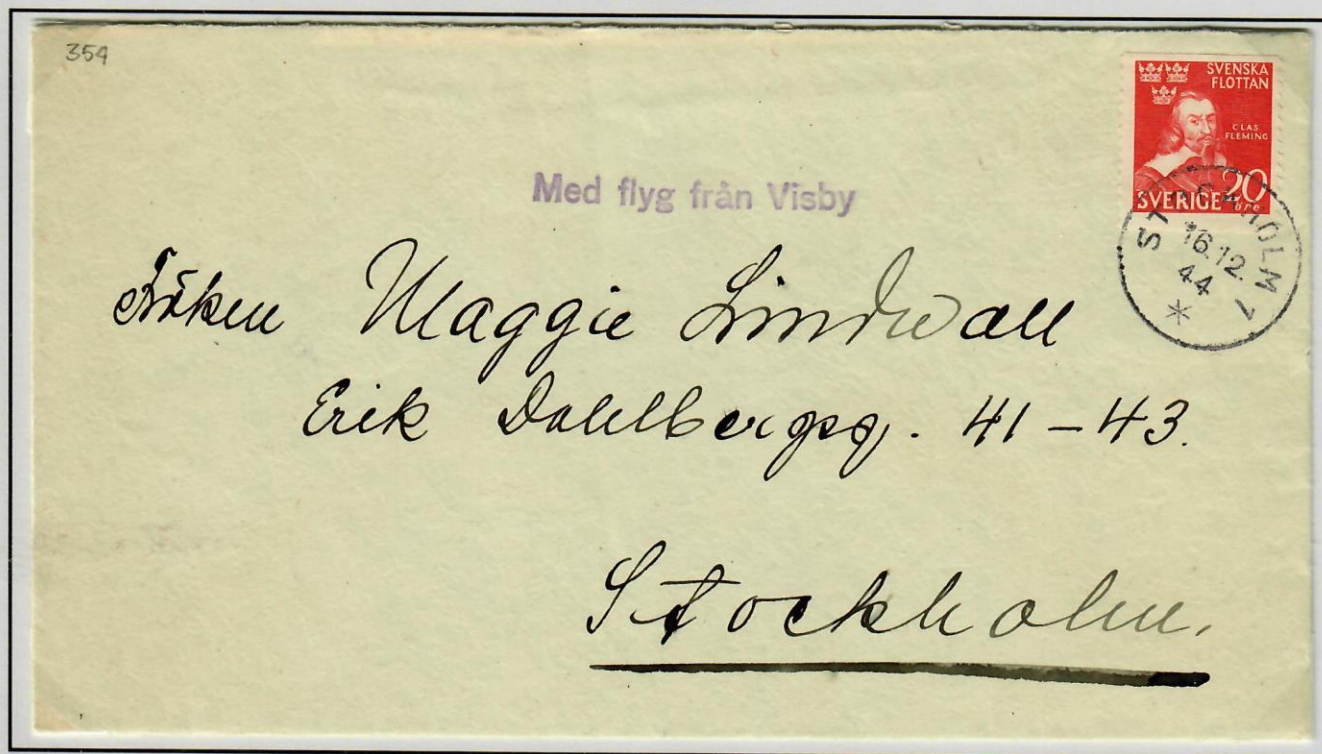 354
SVENSKA
FLOTTAN
CLAS
FLEMING
SVERIGE 20
öre
STOCKHOLM 7
16.12.
44
Med flyg från Visby
Fröken Maggie Lindwall
Erik Dahlbergsg. 41-43.
Stockholm.